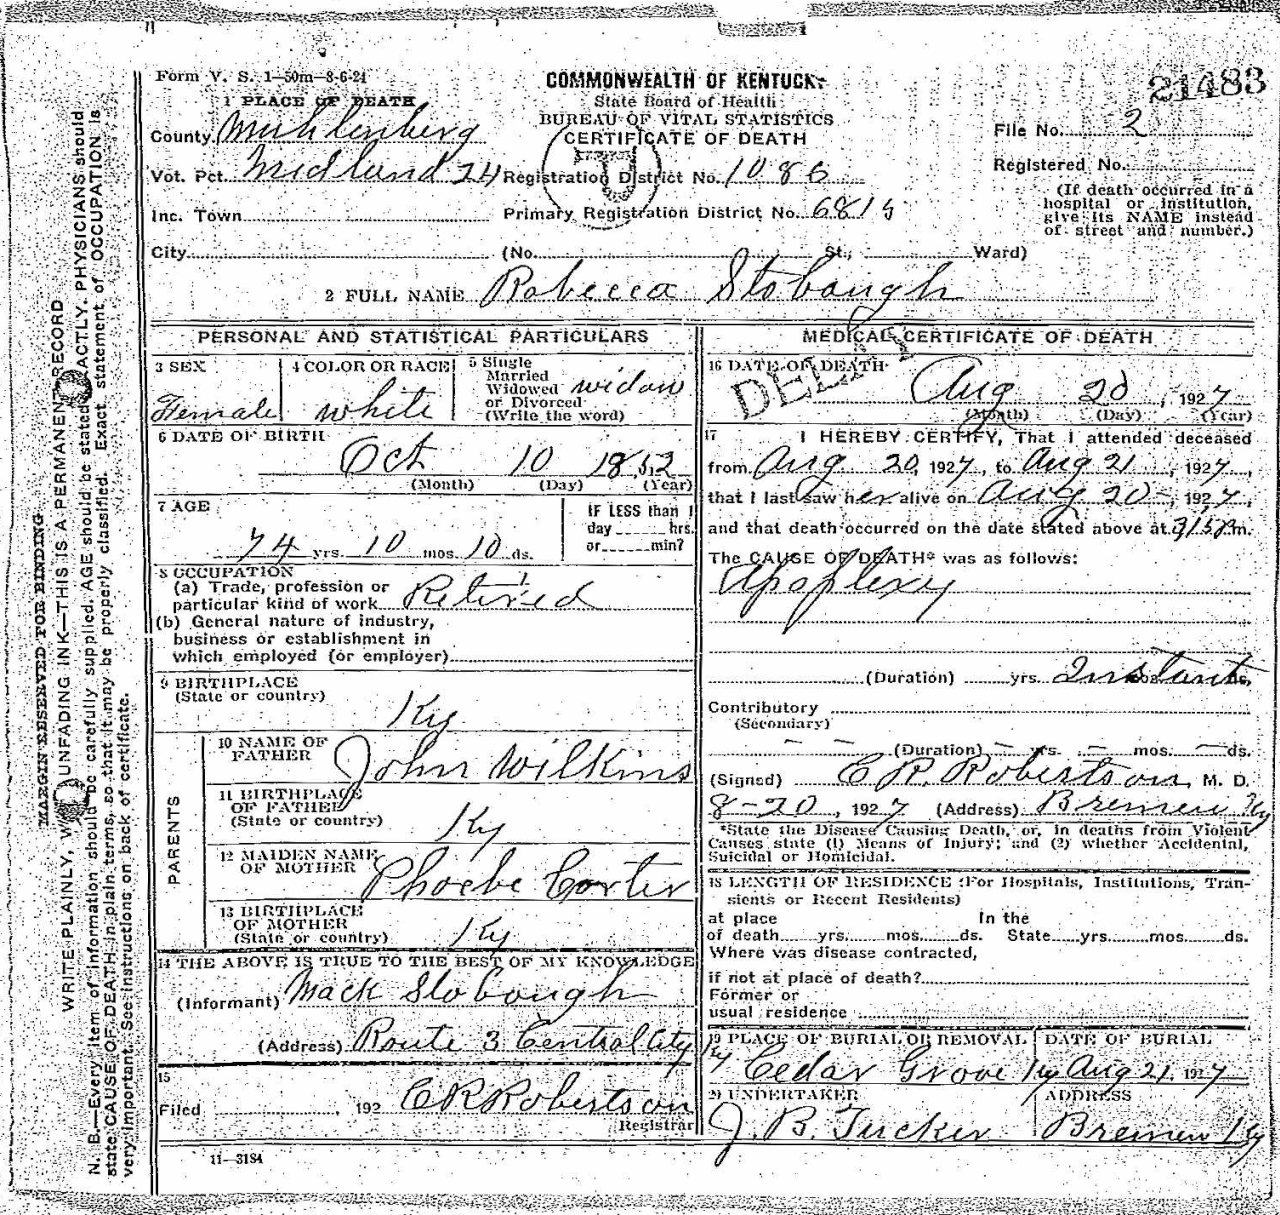 Form V. S. 1—50m—8-6-24
COMMONWEALTH OF KENTUCKY
State Board of Health
BUREAU OF VITAL STATISTICS
CERTIFICATE OF DEATH
21483
1 PLACE OF DEATH
County Muhlenberg
File No. 2
Vot. Pct. Midland 24 Registration District No. 1086
Registered No.
Inc. Town Primary Registration District No. 6815
(If death occurred in a
hospital or institution,
give its NAME instead
of street and number.)
City (No. St., Ward)
2 FULL NAME Rebecca Stobaugh
PERSONAL AND STATISTICAL PARTICULARS
3 SEX
Female
4 COLOR OR RACE
white
5 Single
Married
Widowed
or Divorced
(Write the word)
widow
6 DATE OF BIRTH
Oct 10 1852
(Month) (Day) (Year)
7 AGE
74 yrs. 10 mos. 10 ds.
IF LESS than 1
day hrs.
or min?
8 OCCUPATION
(a) Trade, profession or
particular kind of work Retired
(b) General nature of industry,
business or establishment in
which employed (or employer)
9 BIRTHPLACE
(State or country)
Ky
PARENTS
10 NAME OF
FATHER John Wilkins
11 BIRTHPLACE
OF FATHER
(State or country)
Ky
12 MAIDEN NAME
OF MOTHER Phoebe Carter
13 BIRTHPLACE
OF MOTHER
(State or country) Ky
14 THE ABOVE IS TRUE TO THE BEST OF MY KNOWLEDGE
(Informant) Mack Stobough
(Address) Route 3 Central City
Ky
15
Filed , 192 C R Robertson
Registrar
11—3184
MEDICAL CERTIFICATE OF DEATH
16 DATE OF DEATH
DELAY
Aug 20, 1927
(Month) (Day) (Year)
17 I HEREBY CERTIFY, That I attended deceased
from Aug 20, 1927, to Aug 21, 1927,
that I last saw her alive on Aug 20, 1927,
and that death occurred on the date stated above at 3:15 Pm.
The CAUSE OF DEATH* was as follows:
Apoplexy
(Duration) yrs. mos. ds. Instant
Contributory
(Secondary)
— — (Duration) — yrs. — mos. — ds.
(Signed) C. R. Robertson, M. D.
8-20, 1927 (Address) Bremen Ky
*State the Disease Causing Death, or, in deaths from Violent
Causes state (1) Means of Injury; and (2) whether Accidental,
Suicidal or Homicidal.
18 LENGTH OF RESIDENCE (For Hospitals, Institutions, Tran-
sients or Recent Residents)
at place In the
of death yrs. mos. ds. State yrs. mos. ds.
Where was disease contracted,
if not at place of death?
Former or
usual residence
19 PLACE OF BURIAL OR REMOVAL DATE OF BURIAL
Cedar Grove Ky Aug 21, 1927
20 UNDERTAKER ADDRESS
J. B. Tucker Bremen Ky
MARGIN RESERVED FOR BINDING
WRITE PLAINLY, WITH UNFADING INK—THIS IS A PERMANENT RECORD
N. B.—Every item of information should be carefully supplied. AGE should be stated EXACTLY. PHYSICIANS should
state CAUSE OF DEATH in plain terms, so that it may be properly classified. Exact statement of OCCUPATION is
very important. See instructions on back of certificate.